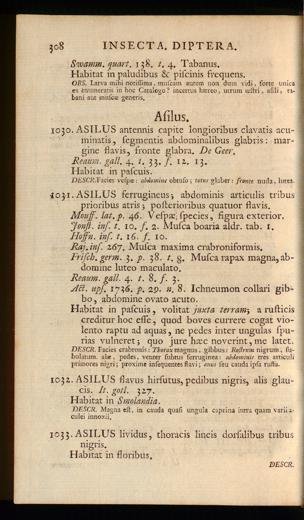 308 INSECTA. DIPTERA.
Swamm. quart. 138. t. 4. Tabanus.
Habitat in paludibus & piscinis frequens.
OBS. Larva mihi notissima, muscam autem non dum vidi, forte unica
ex enumeratis in hoc Catalogo? incertus hæreo, utrum œstri, asili, ta-
bani aut muscæ generis.
Asilus.
1030. ASILUS antennis capite longioribus clavatis acu-
minatis, segmentis abdominalibus glabris: mar-
gine flavis, fronte glabra. De Geer.
Reaum. gall. 4. t. 33. f. 12. 13.
Habitat in pascuis.
DESCR. Facies vespæ: abdomine obtuso; totus glaber: fronte nuda, lutea.
1031. ASILUS ferrugineus, abdominis articulis tribus
prioribus atris; posterioribus quatuor flavis.
Mouff. lat. p. 46. Vespæ, species, figura exterior.
Jonst. ins. t. 10. f. 2. Musca boaria aldr. tab. 1.
Hoffn. ins. t. 16. f. 10.
Raj. ins. 267. Musca maxima crabroniformis.
Frisch. germ. 3. p. 38. t. 8. Musca rapax magna, ab-
domine luteo maculato.
Reaum. gall. 4. t. 8. f. 3.
Act. ups. 1736. p. 29. n. 8. Ichneumon collari gib-
bo, abdomine ovato acuto.
Habitat in pascuis, volitat juxta terram; a rusticis
creditur hoc esse, quod boves currere cogat vio-
lento raptu ad aquas, ne pedes inter ungulas spu-
rias vulneret; quo jure hæc noverint, me latet.
DESCR. Facies crabronis: Thorax magnus, gibbus: Rostrum nigrum, su-
bulatum. alæ, pedes, venter subtus ferruginea: abdominis tres articuli
primores nigri; proxime insequentes flavi; anus seu cauda ipsa rufa.
1032. ASILUS flavus hirsutus, pedibus nigris, alis glau-
cis. It. gotl. 327.
Habitat in Smolandia.
DESCR. Magna est, in cauda quasi ungula caprina intra quam varii a-
culei innoxii.
1033. ASILUS lividus, thoracis lineis dorsalibus tribus
nigris.
Habitat in floribus.
DESCR.